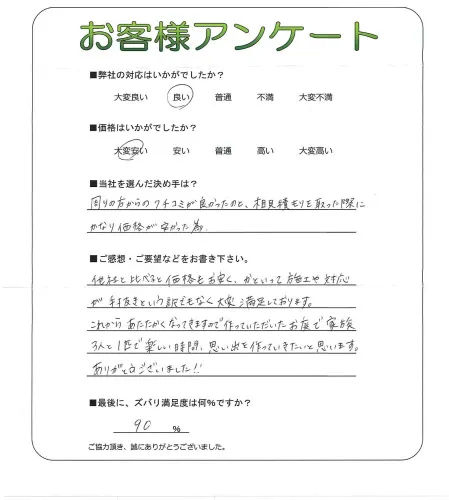 お客様アンケート
■弊社の対応はいかがでしたか？
大変良い 良い 普通 不満 大変不満
■価格はいかがでしたか？
大変安い 安い 普通 高い 大変高い
■当社を選んだ決め手は？
周りの方からのクチコミが良かったのと、相見積もりを取った際に
かなり価格が安かった為.
■ご感想・ご要望などをお書き下さい。
他社と比べると価格もお安く、かといって施工や対応
が手抜きという訳でもなく大変満足しております。
これからあたたかくなってきますので作っていただいたお庭で家族
3人と1匹で楽しい時間、思い出を作っていきたいと思います。
ありがとうございました!!
■最後に、ズバリ満足度は何%ですか？
90 %
ご協力頂き、誠にありがとうございました。